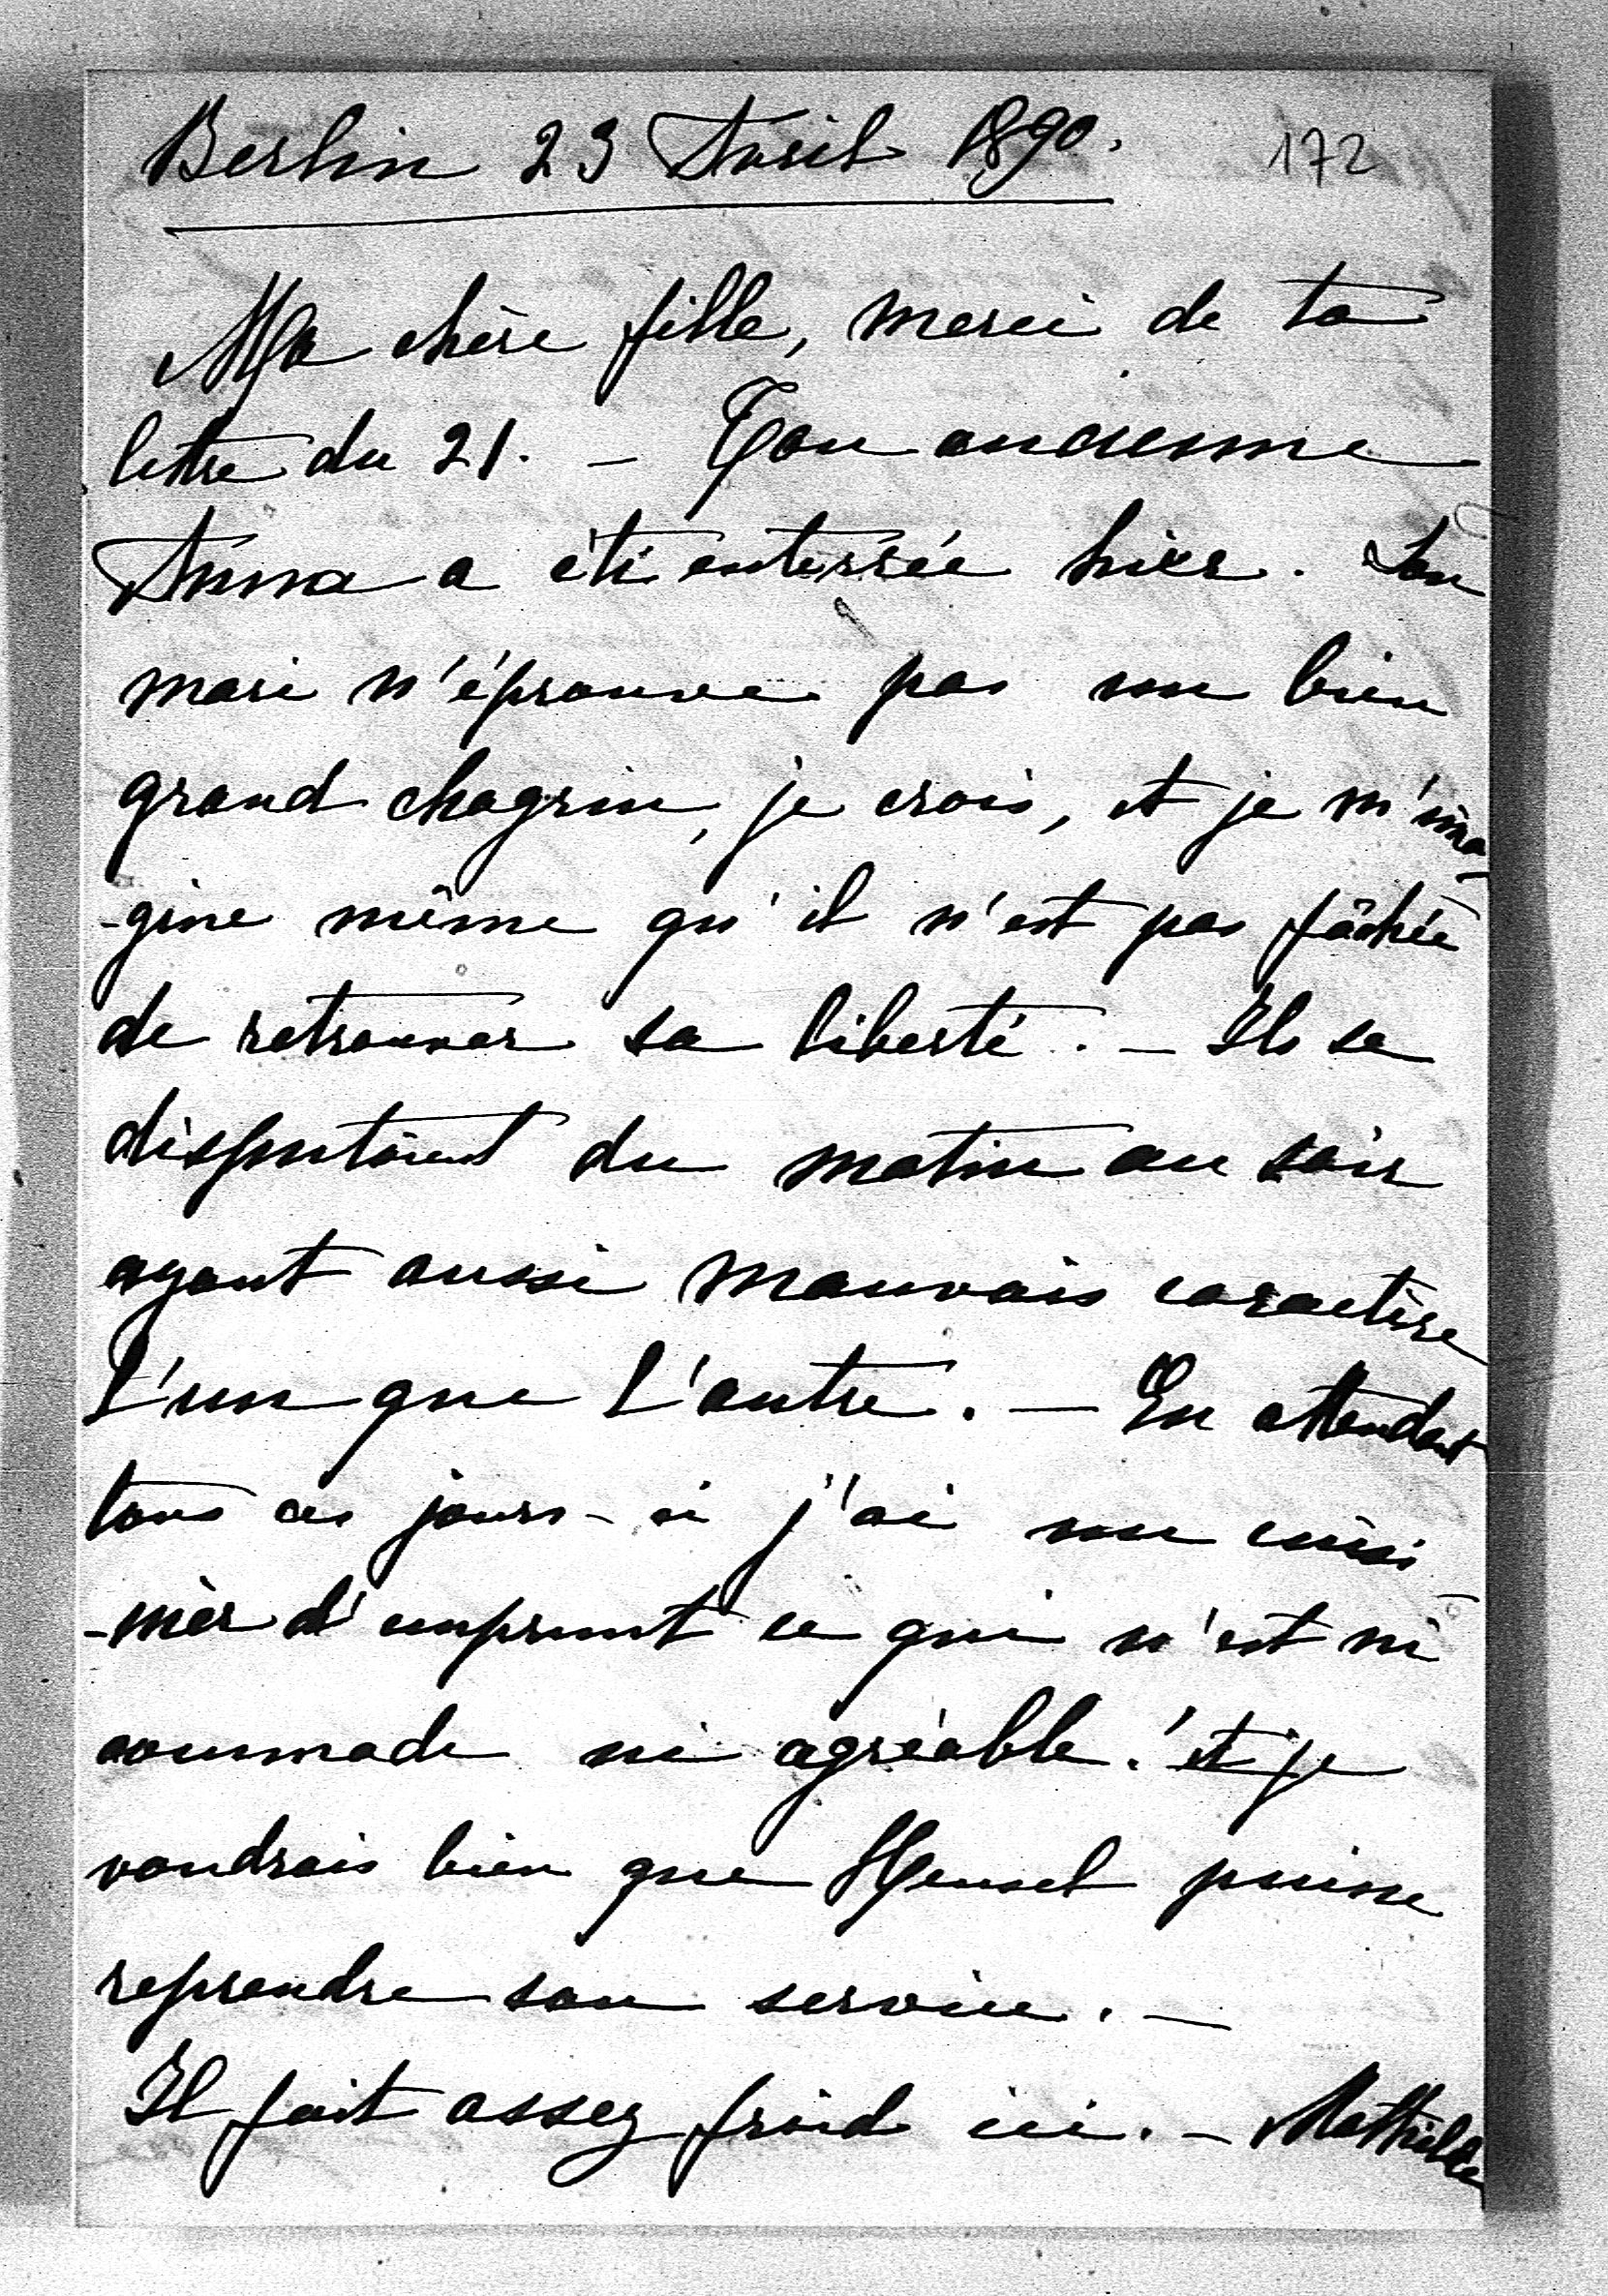 Berlin 23 Avril 1890. 172
Ma chère fille, merci de ta
lettre du 21. – Ton ancienne
Anna a été enterrée hier. Son
mari n'éprouve pas un bien
grand chagrin, je crois, et je m'ima-
-gine même qu'il n'est pas fâché
de retrouver sa liberté. – Ils se
disputaient du matin au soir
ayant aussi mauvais caractère
l'un que l'autre. – En attendant
tous ces jours-ci j'ai un cuisi-
-nier d'emprunt ce qui n'est ni
commode ni agréable! et je
voudrais bien que Hensel puisse
reprendre son service. –
Il fait assez froid ici. – Mathilde